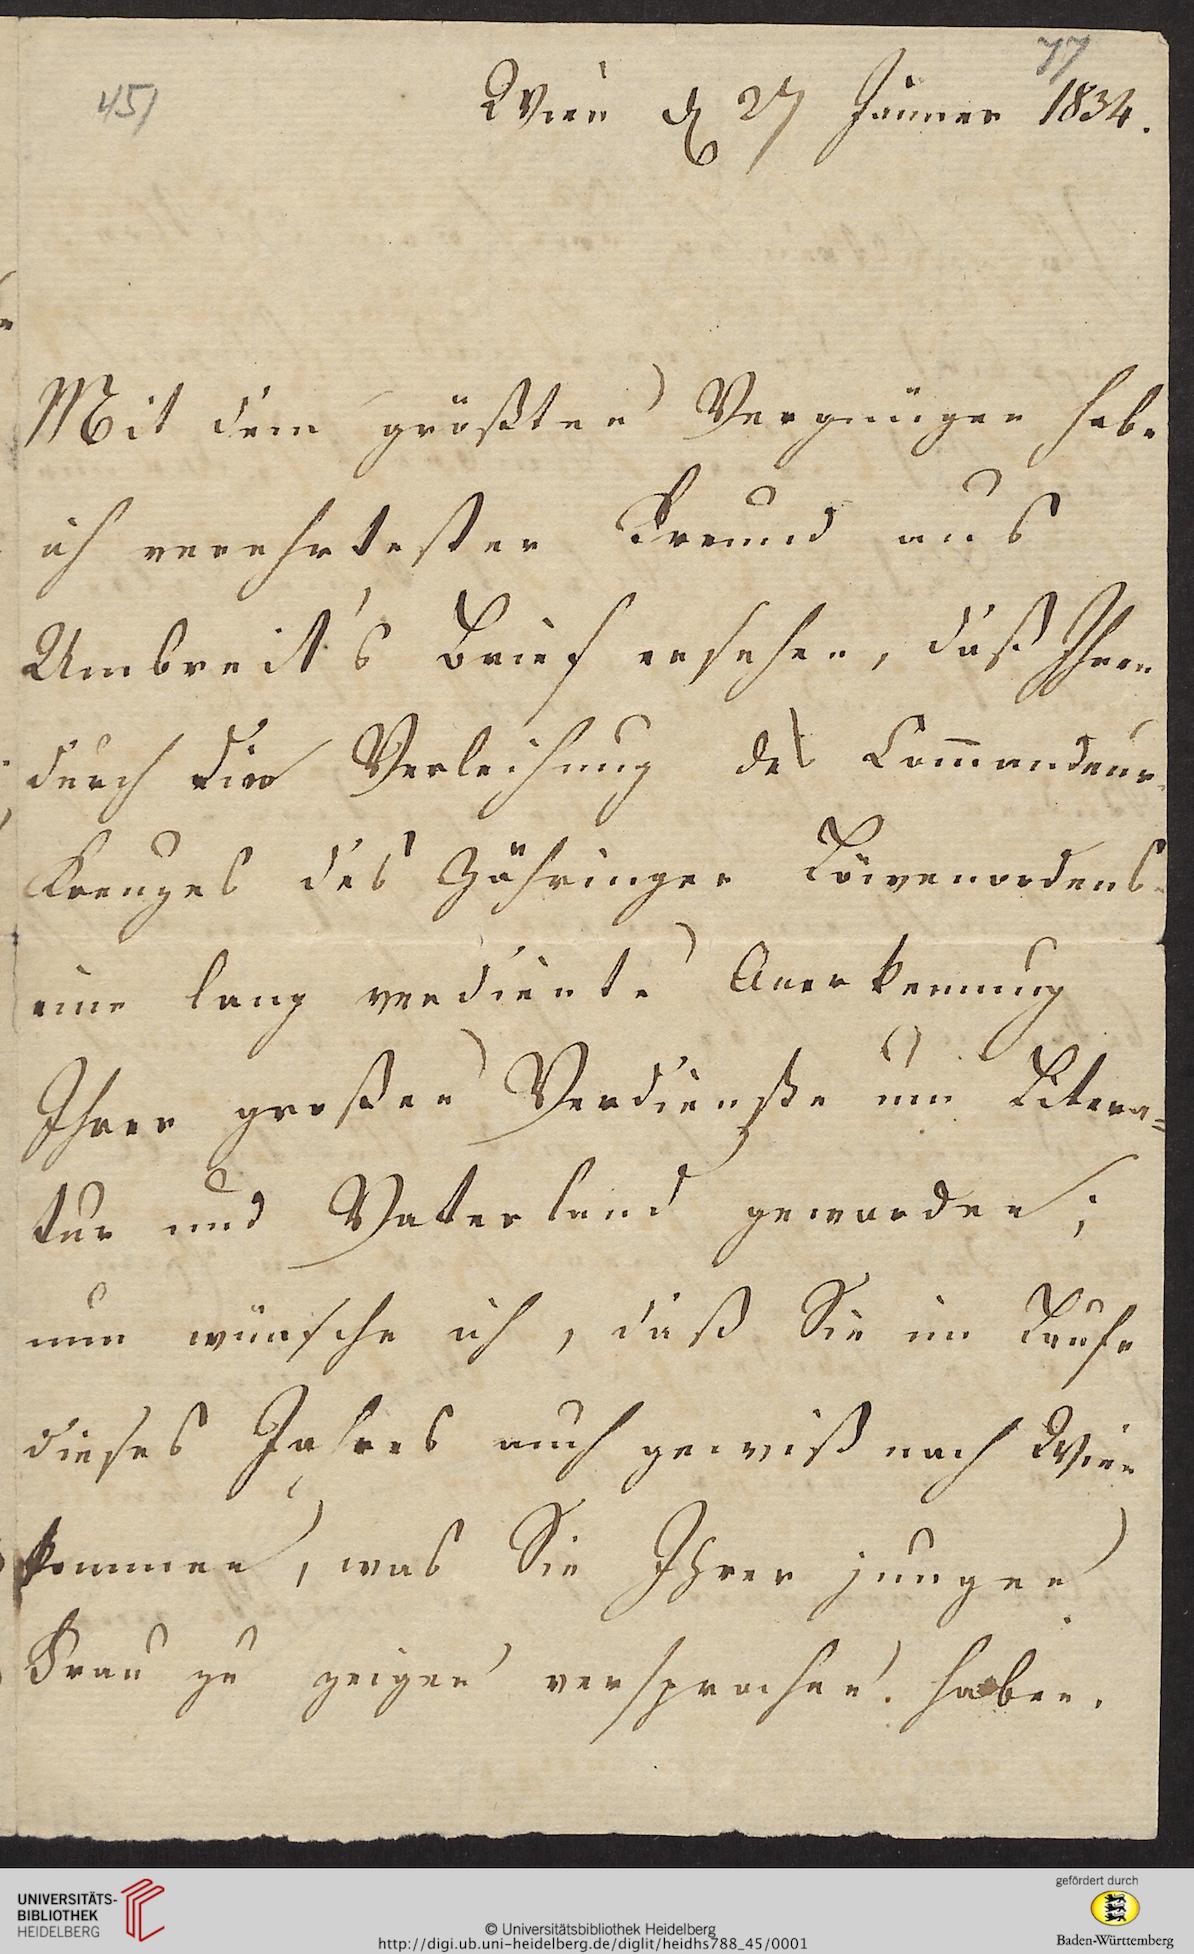 451
77
Wien d 27 Jänner 1834.
Mit dem größten Vergnügen habe
ich verehrtester Freund aus
Umbreit's Brief ersehen, daß Ihnen
durch die Verleihung des Com̄andeur
Kreuzes des Zähringer Löwenordens
eine lang verdiente Anerkennung
Ihrer großen Verdienste um Litera=
tur und Vaterland geworden;
nun wünsche ich, daß Sie im Laufe
dieses Jahres auch gewiß nach Wien
kommen, was Sie Ihrer jungen
Frau zu zeigen versprochen haben.
UNIVERSITÄTS-
BIBLIOTHEK
HEIDELBERG
© Universitätsbibliothek Heidelberg
http://digi.ub.uni-heidelberg.de/diglit/heidhs788_45/0001
gefördert durch
Baden-Württemberg